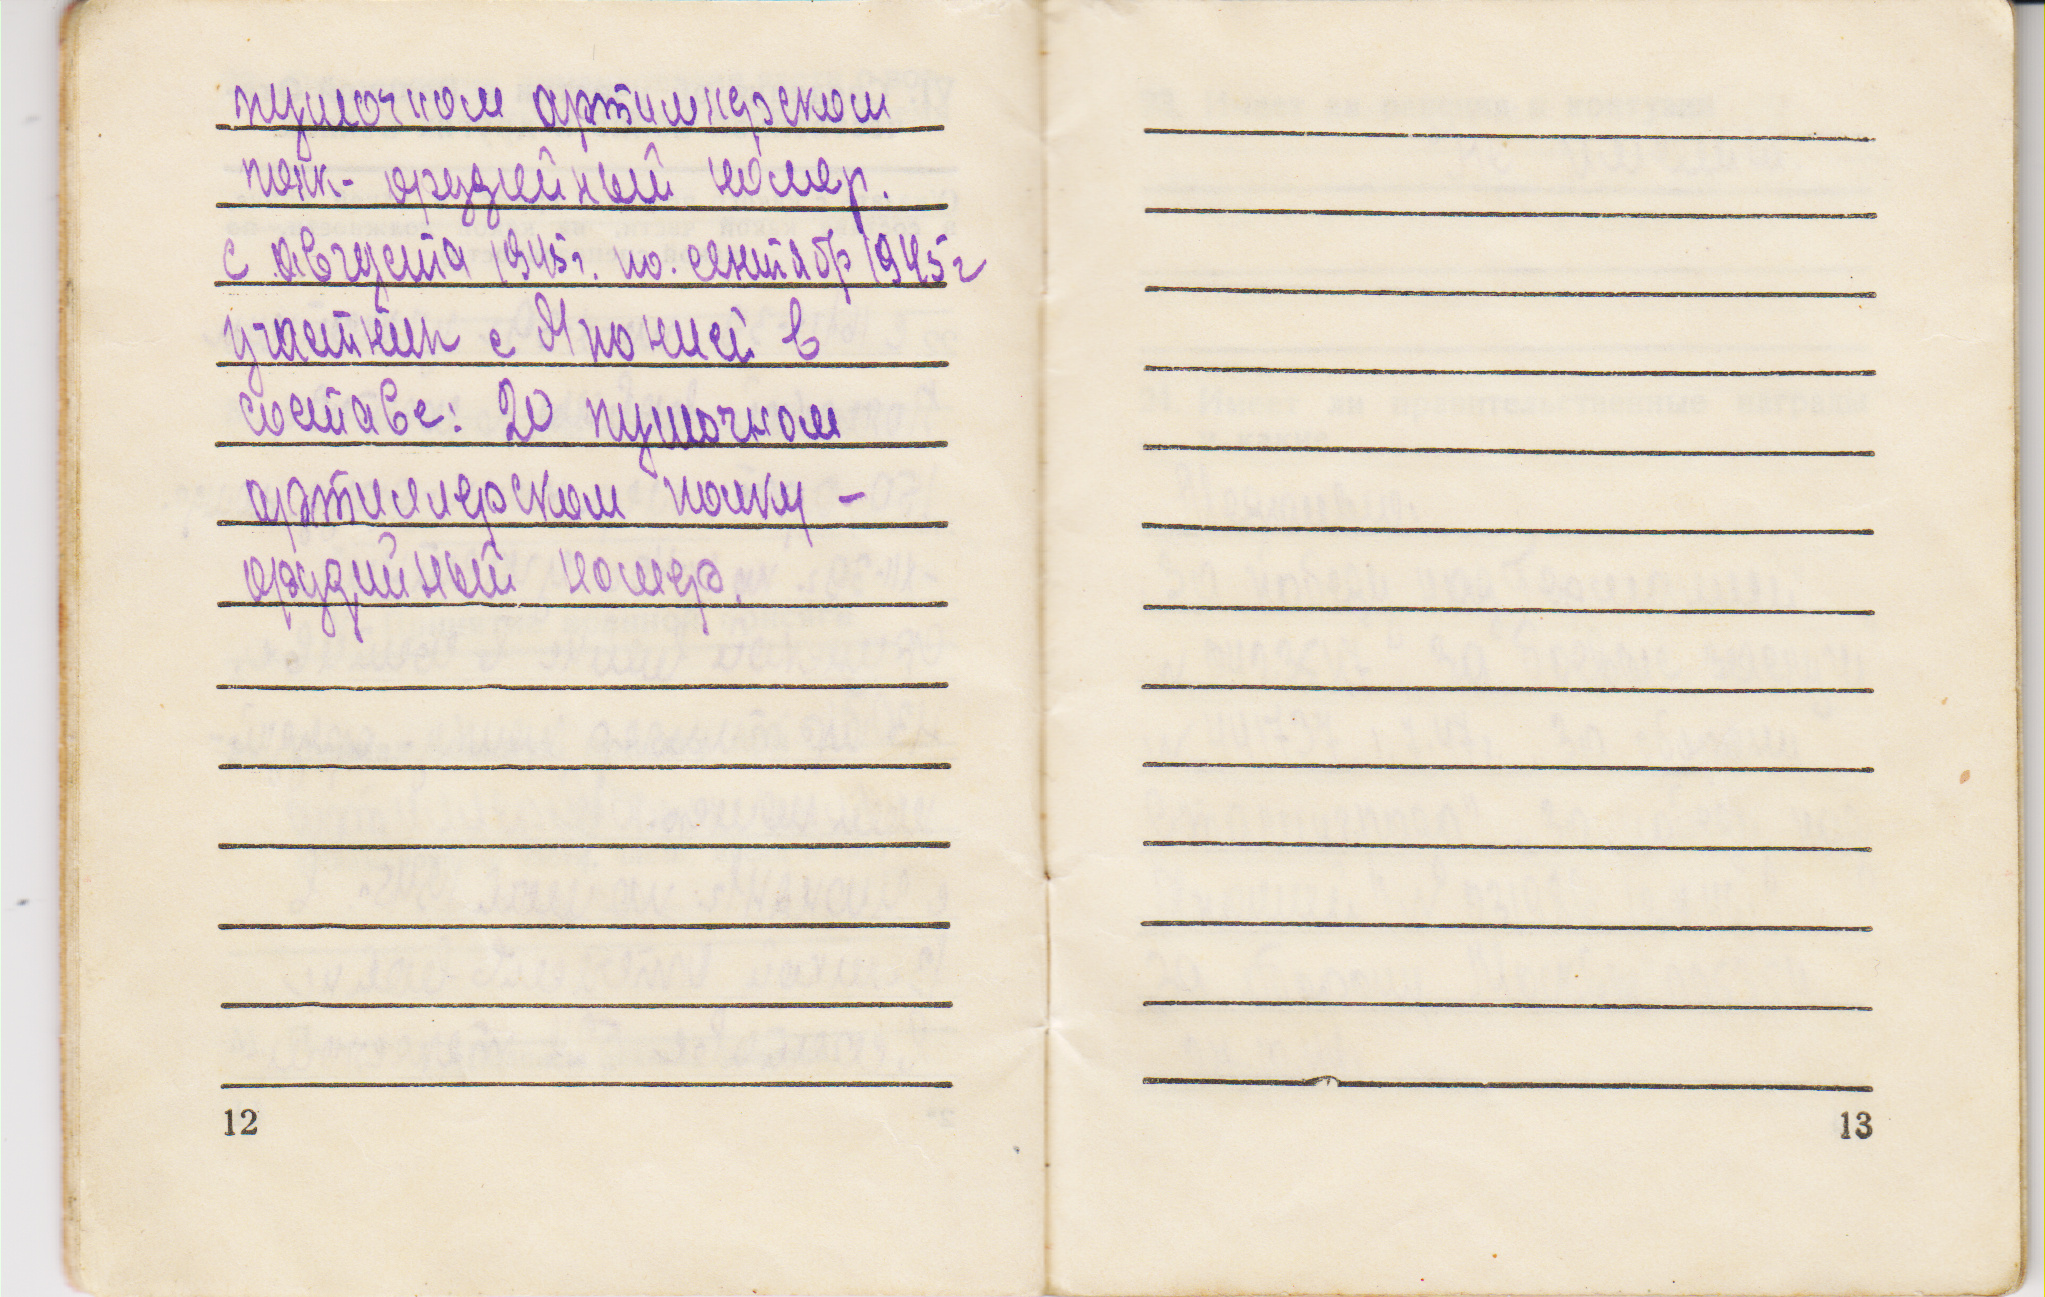 пушочном артиллерском
полк - орудейный номер.
с августа 1945 г. по. сентябр 1945 г
участник с Японией в
составе: 20 пушочном
артиллерском полку -
орудийный номер.
12
13